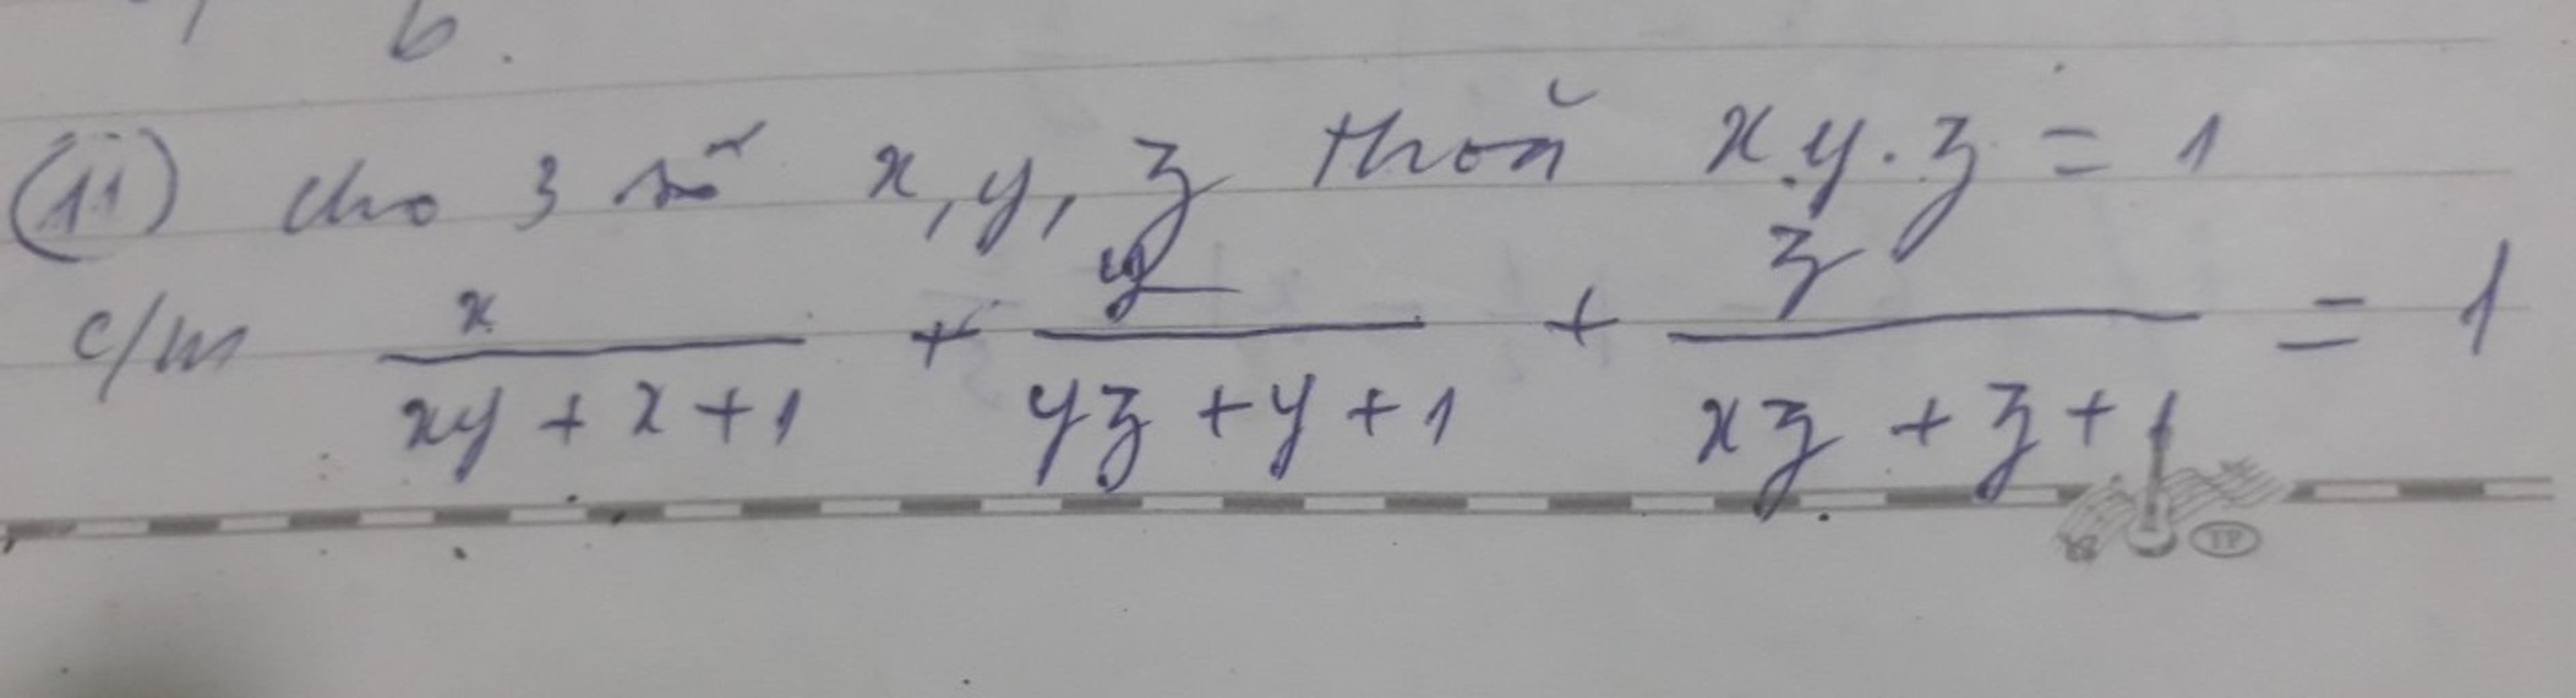 b.
(11) cho 3 số x, y, z thoả x.y.z = 1
c/m x/(xy + x + 1) + y/(yz + y + 1) + z/(xz + z + 1) = 1
TP